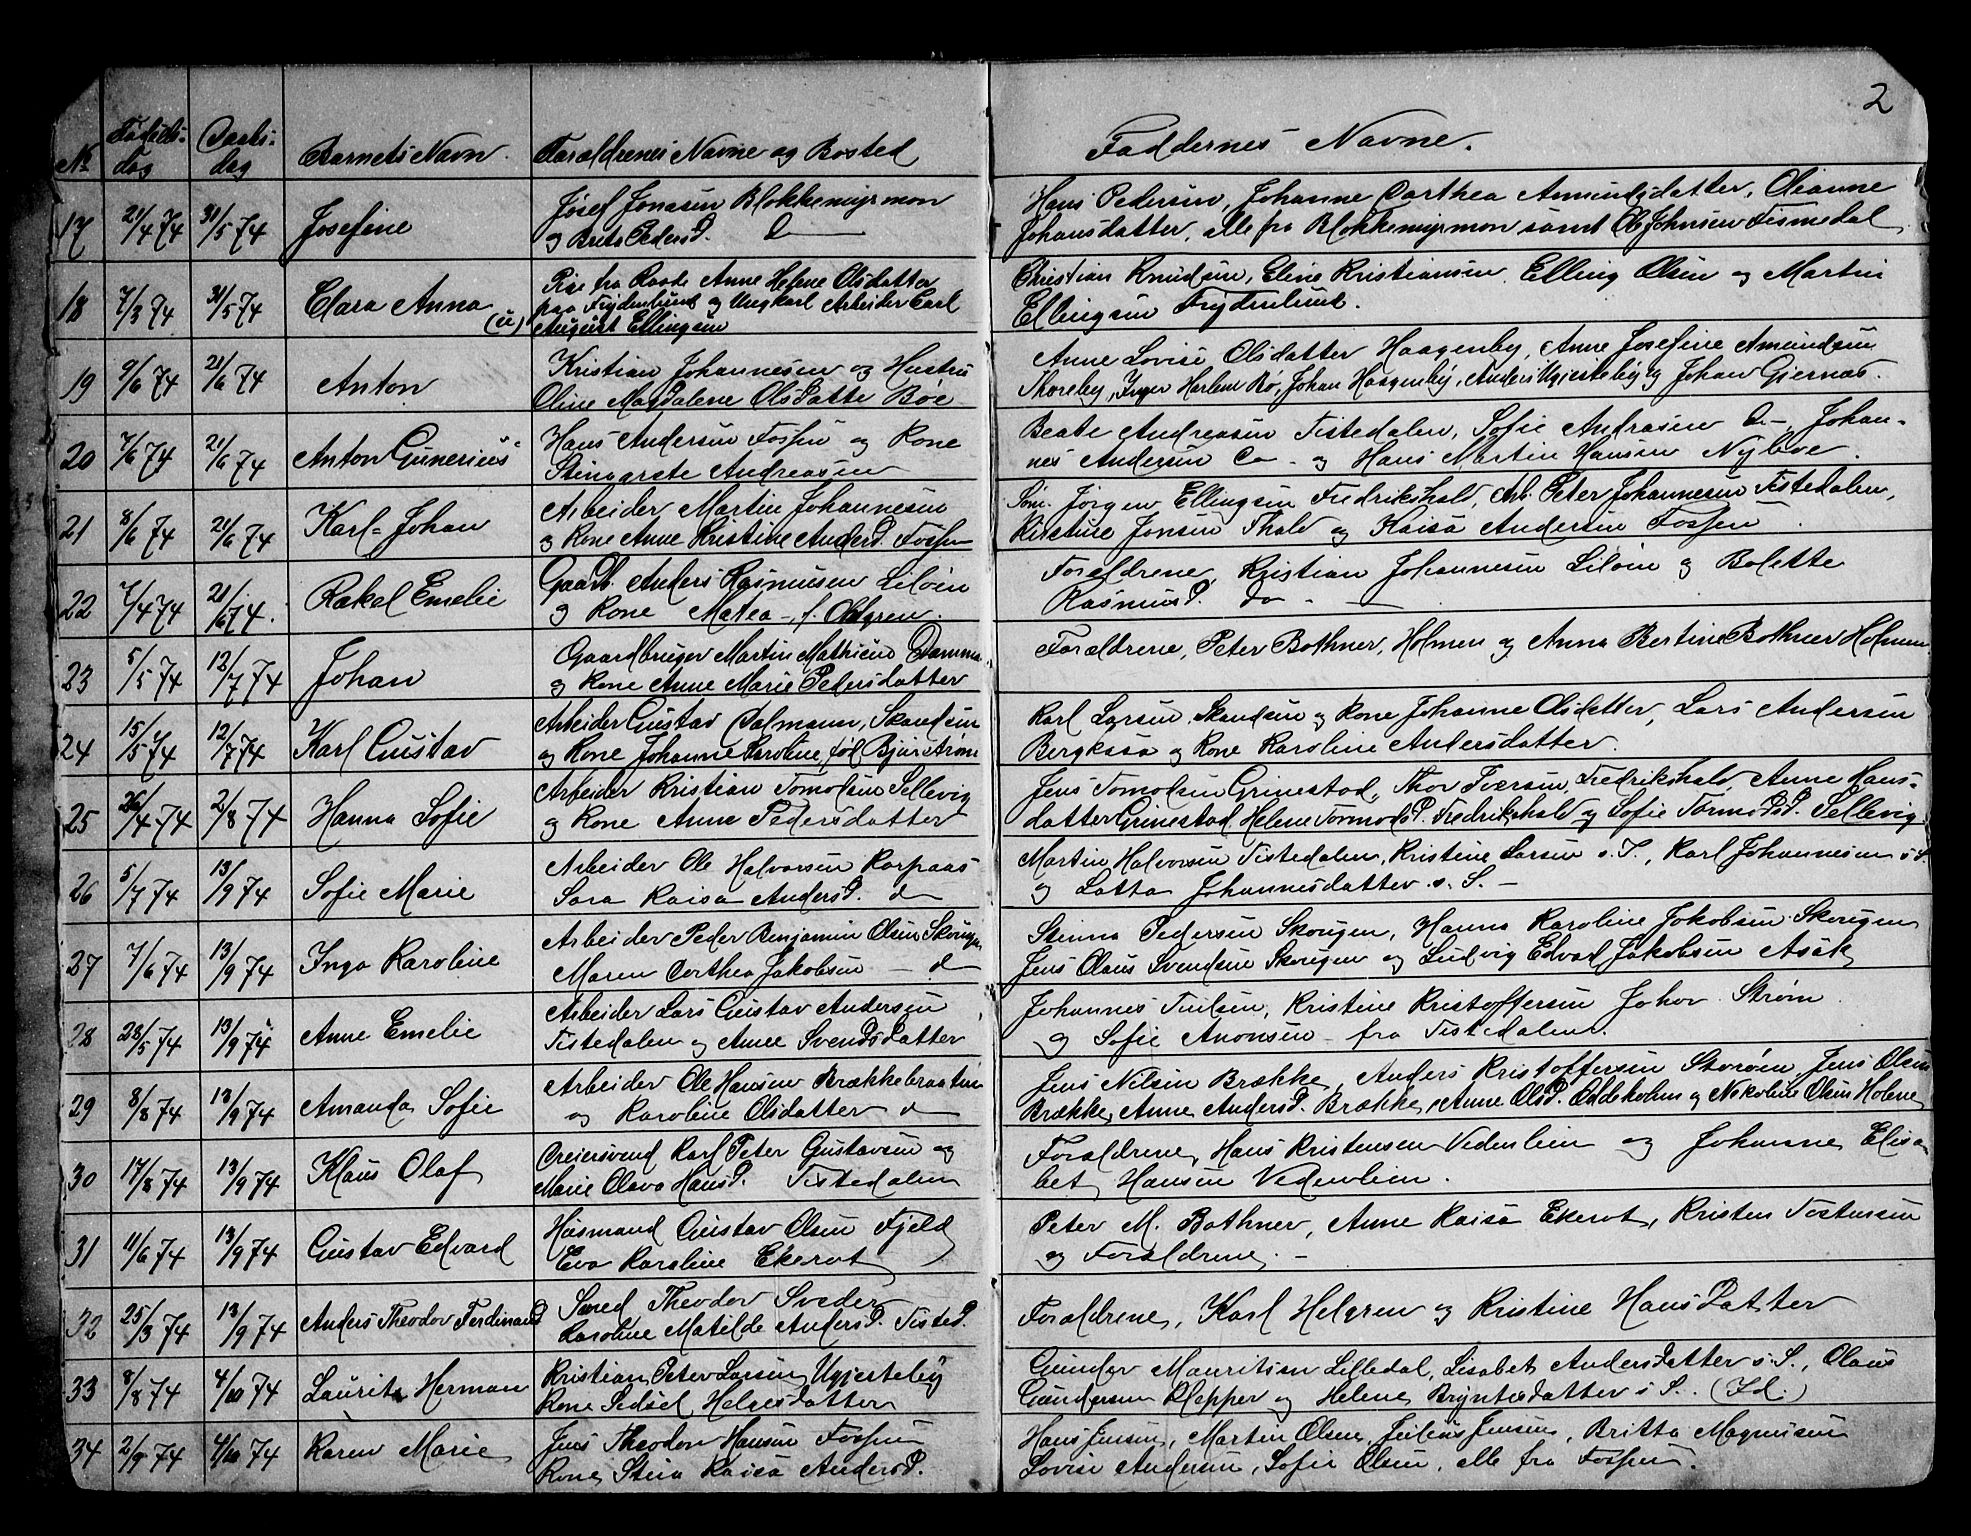 2
No Fødsels-dag Daabs-dag Barnets Navn. Forældrenes Navne og Bosted Faddernes Navne.
17 21/4 74 31/5 74 Josefine Jósef Jonasen Blokkemyrmon Hans Pedersen, Johanne Dorthea Amundsdatter, Oleanne
og Berte PedersD. D— Johansdatter, alle fra Blokkemyrmon samt Ole Johnsen Tismedal
18 7/3 74 31/5 74 Clara Anna (u) Pige fra Raade Anne Helene Olsdatter Christian Knudsen, Eline Kristiansen, Elling Olsen og Martin
paa Frydenlund og Ungkarl Arbeider Carl Ellingsen Frydenlund.
August Ellingsen
19 9/6 74 21/6 74 Anton Kristian Johannesen og Hustru Anne Lovise Olsdatter Haagenby, Anne Josefine Amundsen
Oline Magdalene Olsdatte Böe Thoreby, Inger Harlem Bø, Johan Haagenby, Anders Ugjerteby og Johan Gjernæs.
20 7/6 74 21/6 74 Anton Gunerius Hans Andersen Fossen og Kone Beate Andreasen Tistedalen, Sofie Andrasen Do—, Johan-
Stinagrete Andreasen nes Andersen Do - og Hans Martin Hansen Nyboe.
21 8/6 74 21/6 74 Karl-Johan Arbeider Martin Johannesen Söm. Jörgen Ellingsen Fredrikshald, Arb. Peter Johannesen Tistedalen,
og Kone Anne Kristine AndersD. Fossen Kirstine Jonsen Thald og Kaisa Andersen Fossen.
22 7/4 74 21/6 74. Rakel Emelie Gaardb. Anders Rasmusen Liløin Forældrene, Kristian Johannesen Liløin og Bolette
og Kone Matea - f. Odgren. RasmusD. do - —
23 5/5 74 12/7 74 Johan Gaardbruger Martin Mathisen Damma Forældrene, Peter Bothner, Holmen og Anna Bertine Bothner Holmen
og Kone Anne Marie Pedersdatter
24 15/5 74 12/7 74 Karl Gustav Arbeider Gustav Dalmann, Skandsen Karl Larsen Skandsen og Kone Johanne Olsdatter, Lars Andersen
og Kone Johanne Karoline, föd Bjurström Bergkasa og Kone Karoline Andersdatter.
25 26/4 74 2/8 74 Hanna Sofie Arbeider Kristian Tomolsen Sellevig Jens Tomolsen Grinestad, Thor Tversen, Fredrikshald, Anne Hans-
og Kone Anne Pedersdatter datter Grinestad, Helene TormodsD. Fredrikshald og Sofie TormodsD. Sellevig.
26 5/7 74 13/9 74 Sofie Marie Arbeider Ole Halvorsen Korpaas Martin Halvorsen Tistedalen, Kristine Larsen s. S., Karl Johannesen s. S
Sara Kaisa AndersD. d— og Lotta Johannesdatter s. S. —
27 7/6 74 13/9 74 Inga Karoline Arbeider Peder Benjamin Olsen Skougen Stinna Pedersen Skougen, Hanna Karoline Jakobsen Skougen
Maren Dorthea Jakobsen — d— Jens Olaus Svendsen Skougen og Ludvig Edvard Jakobsen Asak
28 28/5 74 13/9 74 Anne Emelie Arbeider Lars Gustav Andersen Johannes Nilsen, Kristine Kristoffersen Johov. Strøm
Tistedalen og Anne Svendsdatter og Sofie Anonsen - fra Tistedalen.
29 8/8 74 13/9 74 Amanda Sofie Arbeider Ole Hansen Brækkebraaten Jens Nilsen Brække, Anders Kristoffersen Storöm, Jens Olsen
og Karoline Olsdatter d— Brække, Anne AndersD. Brække, Anne OlsD. Oddekolm og Nikoline Olsen Holene
30 17/8 74 13/9 74 Klaus Olaf Dreiersvend Karl Peter Gustavsen og Forældrene, Hans Kristensen Vedenlien og Johanne Elisa-
Marie Olava HansD. Tistedalen bet Hansen Vedenlien.
31 11/6 74 13/9 74 Gustav Edvard Husmand Gustav Olsen Fjeld Peter M. Bothner, Anne Kaisa Ekerot, Kristen Tostensen
Eva Karoline Ekerot og Forældrene. —
32 25/3 74 13/9 74 Anders Theodor Ferdinand Smed Theodor Sveder Forældrene, Karl Helgren og Kristine Hansdatter
Karoline Matilde AndersD. Tisted.
33 8/8 74 4/10 74 Laurits Herman Kristian Peter Larsen Ugjerteby Gunder Mauritsen Lilledal, Lisabet Andersdatter s. S., Olaus
Kone Sidsel Helgesdatter Gundersen Klepper og Helene Bryntesdatter s S. (Id.)
34 2/9 74 4/10 74 Karen Marie Jens Theodor Hansen Fossen Hans Jensen, Martin Olsen, Julius Jensen, Britta Magnusen
Kone Stina Kaisa AndersD. Lovise Andersen, Sofie Olsen, alle fra Fossen.